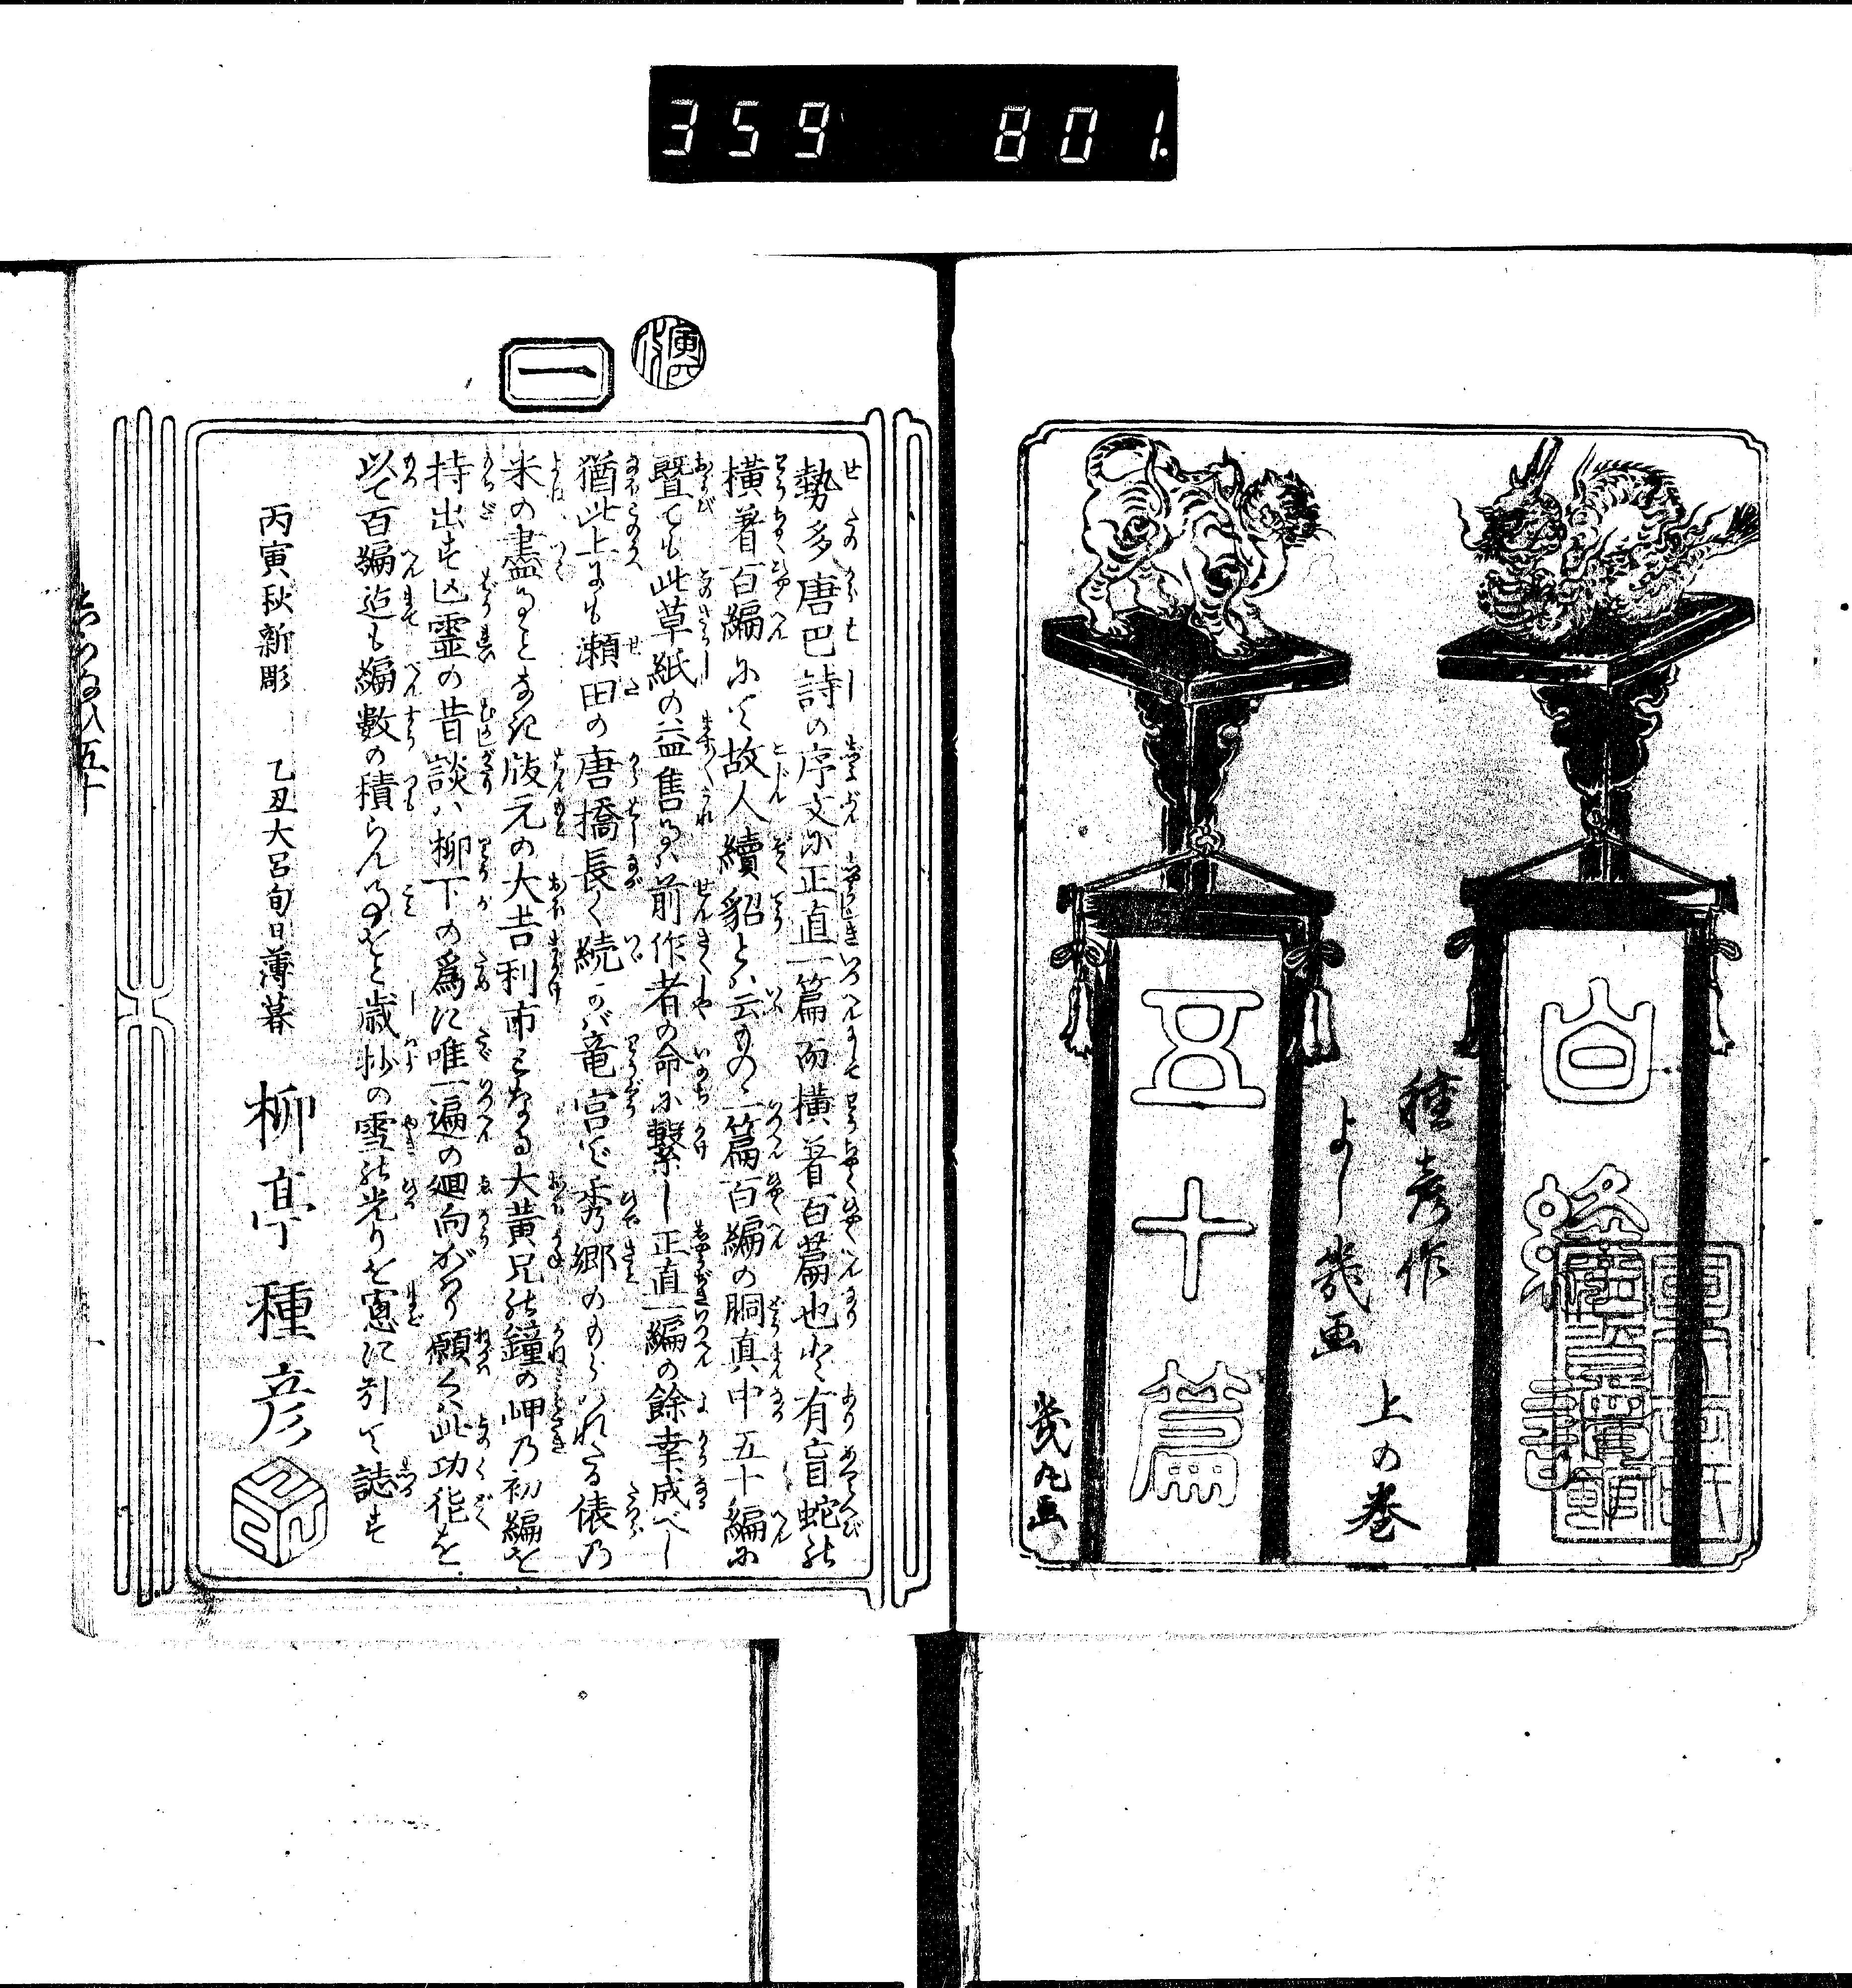 359 801.
白縫
五十篇
種彦作
よし幾画
上の巻
幾丸画
寅四
改
一
勢多唐巴詩の序文に正直一篇而横着百篇也と有盲蛇の
横着百編にて故人續貂とハ云ものゝ一篇百編の胴真中五十編に
曁ても此草紙の益售るハ前作者の命に繋し正直一編の餘幸成べし
猶此上にも瀬田の唐橋長く続かバ竜宮で秀郷のもらハれたる俵乃
米の盡ると
なき版元の大吉利市となる大黄兄の鐘の岬乃初編を
持出す凶霊の昔談ハ柳下の爲に唯一遍の廻向がハり願くハ此功能を
以て百編迄も編數の積らん
を
と歳抄の雪の光りを窓に引て誌す
丙寅秋新彫
乙丑大呂旬日薄暮
柳亭種彦
五十